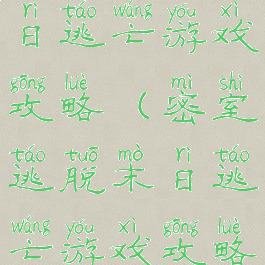 rì táo wáng yóu xì
日逃亡游戏
gōng lüè mì shì
攻略（密室
táo tuō mò rì táo
逃脱末日逃
wáng yóu xì gōng lüè
亡游戏攻略